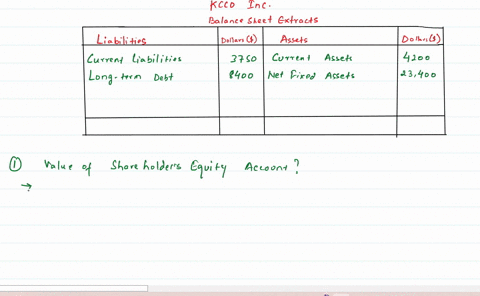 KCCO Inc.
Balance Sheet Extracts
Liabilities Dollars($) Assets Dollars($)
Current Liabilities 3750 Current Assets 4200
Long-term Debt 8400 Net Fixed Assets 23,400
① Value of Shareholders Equity Account?
→